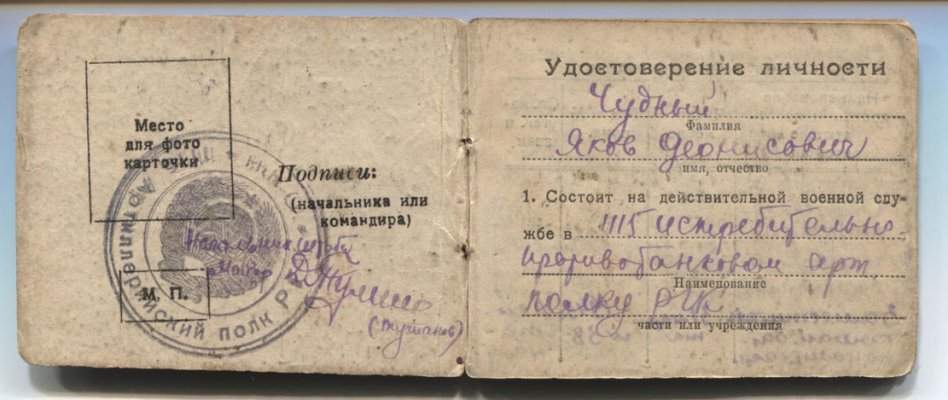 Место
для фото
карточки
М. П.
Артиллерийский полк
Подписи:
(начальника или
командира)
Начальник штаба
майор
Удостоверение личности
Чудный
Фамилия
Яков Деонисович
имя, отчество
1. Состоит на действительной военной слу-
жбе в 1115 истребительно-
противотанковом арт.
Наименование
полку РГК
части или учреждения